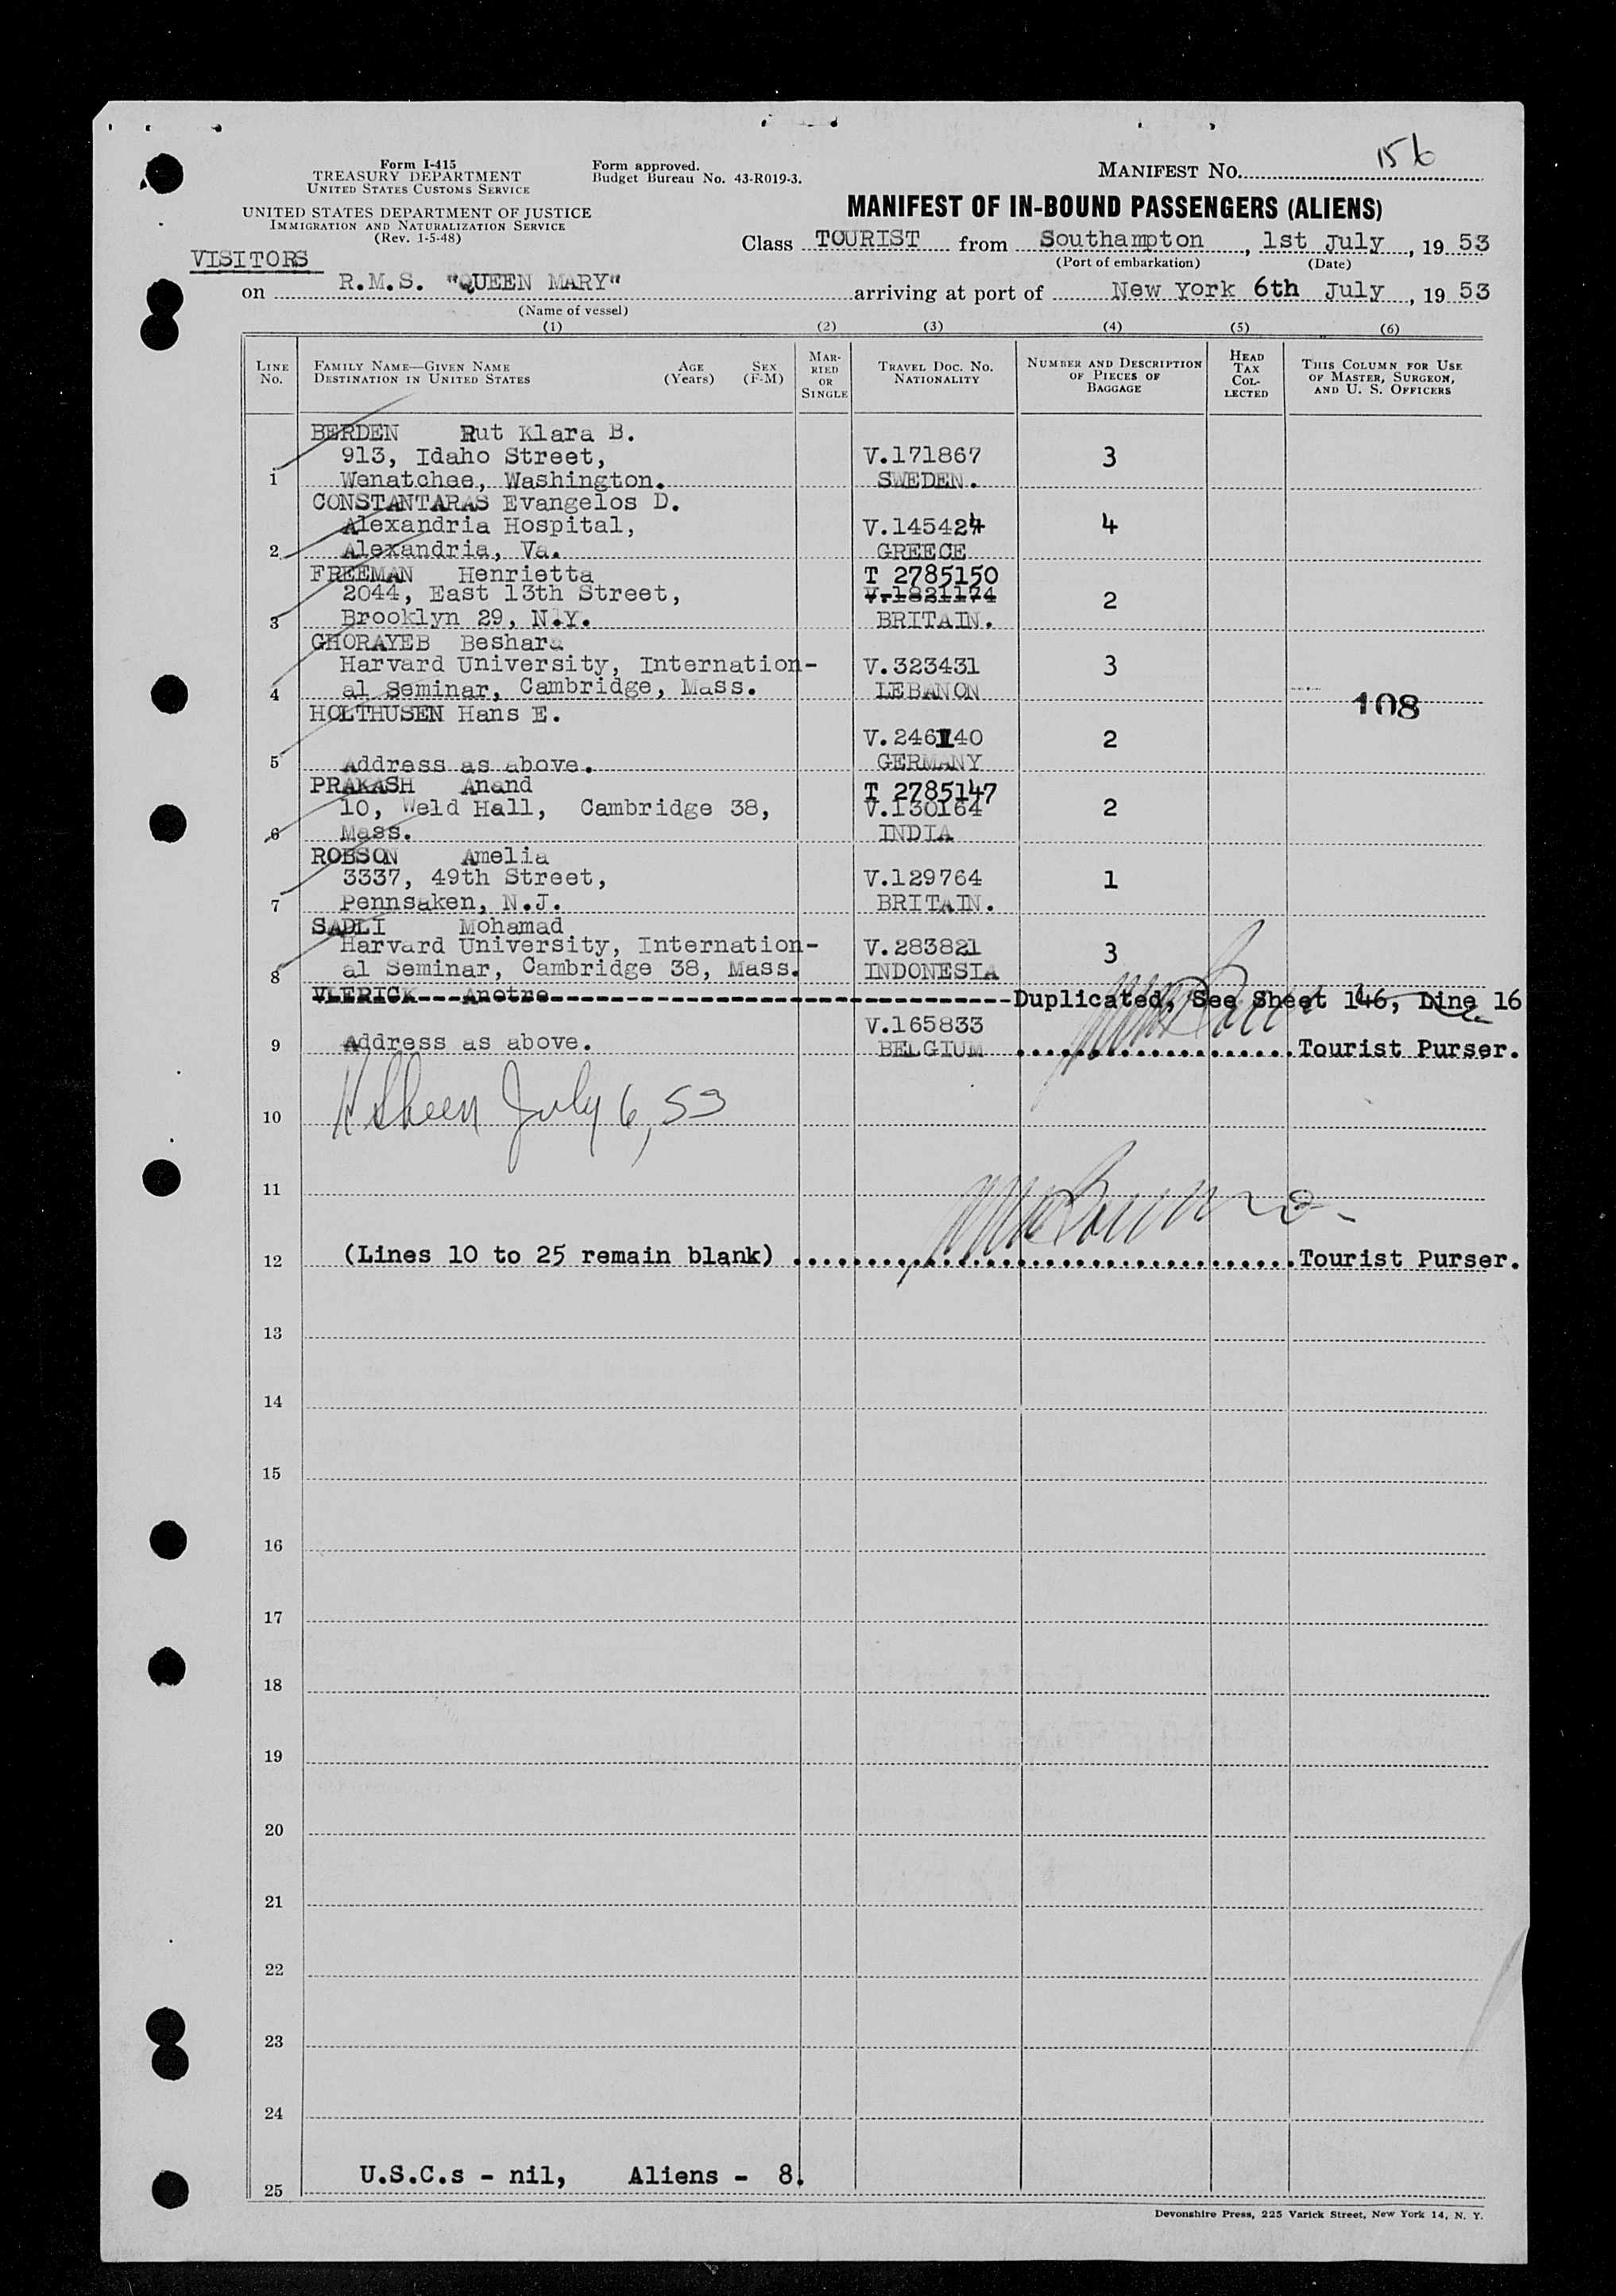 Form I-415
TREASURY DEPARTMENT
UNITED STATES CUSTOMS SERVICE
Form approved.
Budget Bureau No. 43-R019-3.
MANIFEST No. 156
UNITED STATES DEPARTMENT OF JUSTICE
IMMIGRATION AND NATURALIZATION SERVICE
(Rev. 1-5-48)
MANIFEST OF IN-BOUND PASSENGERS (ALIENS)
Class TOURIST from Southampton, 1st July, 19 53
(Port of embarkation) (Date)
VISITORS
on R.M.S. "QUEEN MARY" arriving at port of New York 6th July, 19 53
(Name of vessel)
(1) (2) (3) (4) (5) (6)
LINE No. FAMILY NAME—GIVEN NAME DESTINATION IN UNITED STATES AGE (Years) SEX (F-M) MARRIED OR SINGLE TRAVEL DOC. NO. NATIONALITY NUMBER AND DESCRIPTION OF PIECES OF BAGGAGE HEAD TAX COLLECTED THIS COLUMN FOR USE OF MASTER, SURGEON, AND U. S. OFFICERS
BERDEN Rut Klara B.
913, Idaho Street, V.171867 3
1 Wenatchee, Washington. SWEDEN.
CONSTANTARAS Evangelos D.
Alexandria Hospital, V.145424 4
2 Alexandria, Va. GREECE
FREEMAN Henrietta T 2785150
2044, East 13th Street, V.1821174 2
3 Brooklyn 29, N.Y. BRITAIN.
GHORAYEB Beshara
Harvard University, Internation- V.323431 3
4 al Seminar, Cambridge, Mass. LEBANON
108
HOLTHUSEN Hans E.
V.246140 2
5 Address as above. GERMANY
PRAKASH Anand T 2785147
10, Weld Hall, Cambridge 38, V.130164 2
6 Mass. INDIA
ROBSON Amelia
3337, 49th Street, V.129764 1
7 Pennsaken, N.J. BRITAIN.
SADLI Mohamad
Harvard University, Internation- V.283821 3
8 al Seminar, Cambridge 38, Mass. INDONESIA
VLERICK---Anetre------Duplicated, See Sheet 146, Line 16
V.165833
9 Address as above. BELGIUM ....Tourist Purser.
10 July 6, 53
11
12 (Lines 10 to 25 remain blank) ....Tourist Purser.
13
14
15
16
17
18
19
20
21
22
23
24
25 U.S.C.s - nil, Aliens - 8.
Devonshire Press, 225 Varick Street, New York 14, N. Y.